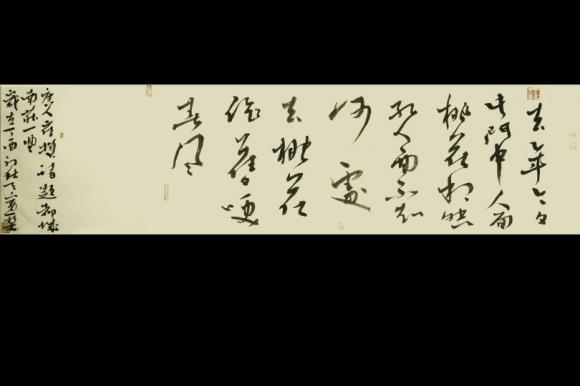 去年今日
此門中人面
桃花相映
紅人面不知
何處
去桃花
依舊咲
春風
唐人崔護詩題都城
南莊一首
歲在丁酉